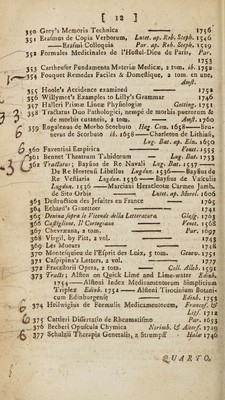 [ 12 ]
350 Gery's Memoria Technica 1756
351 Erasmus de Copia Verborum, Lutet. ap. Rob. Steph. 1546
— Erasmi Colloquia Par. ap. Rob. Steph. 1529
352 Formules Medicinales de l'Hostel-Dieu de Paris, Par. 1753
353 Cartheuser Fundamenta Materiæ Medicæ, 2 tom. ib. 1752
354 Fouquet Remedes Faciles & Domestique, 2 tom. en une, Amst.
355 Hoole's Accidence examined 1752
356 Willymot's Examples to Lilly's Grammar 1746
357 Halleri Primæ Lineæ Physiologiæ Gotting. 1751
358 Tractatus Duo Pathologici, nempè de morbis puerorum & de morbis cutaneis, 2 tom. Amst. 1760
359 Eugalenus de Morbo Scorbuto Hag. Com. 1658 — Brunerus de Scorbuto ib. 1658 — Charleton de Lithiasi, Lug. Bat. ap. Elz. 1650
360 Faventini Empirica Venet. 1555
361 Bennet Theatrum Tabidorum Lug. Bat. 1733
362 Tractatus; Bayfius de Re Navali Lug. Bat. 1537 — De Re Hortensi Libellus Lugdun. 1536 — Bayfius de Re Vestiaria Lugdun. 1536 — Bayfius de Vasculis Lugdun. 1536 — Marciani Heracleotæ Carmen Jamb. de Situ Orbis Lutet. ap. Morel. 1606
363 Destruction des Jesuites en France 1765
364 Echard's Gazetteer 1741
365 Denina sopra le Vicende della Letteratura Glasg. 1763
366 Castiglione, Il Cortegiano Venet. 1568
367 Chevræana, 2 tom. Par. 1697
368 Virgil, by Pitt, 2 vol. 1743
369 Les Moeurs 1748
370 Montesquieu de l'Esprit des Loix, 3 tom. Genev. 1751
371 Calpipina's Letters, 2 vol. 1777
372 Fracastorii Opera, 2 tom. Coll. Allob. 1591
373 Tracts; Alston on Quick Lime and Lime-water Edinb. 1754 — Alstoni Index Medicamentorum Simplicium Triplex Edinb. 1752 — Alstoni Tirocinium Botanicum Edinburgense Edinb. 1753
374 Heilwigius de Formulis Medicamentorum, Francof. & Lips. 1712
375 Cattieri Dissertatio de Rheumatismo Par. 1653
376 Becheri Opuscula Chymica Norimb. & Altorf. 1719
377 Schulzii Therapia Generalis, a Strumpff Halæ 1746
QUARTO.